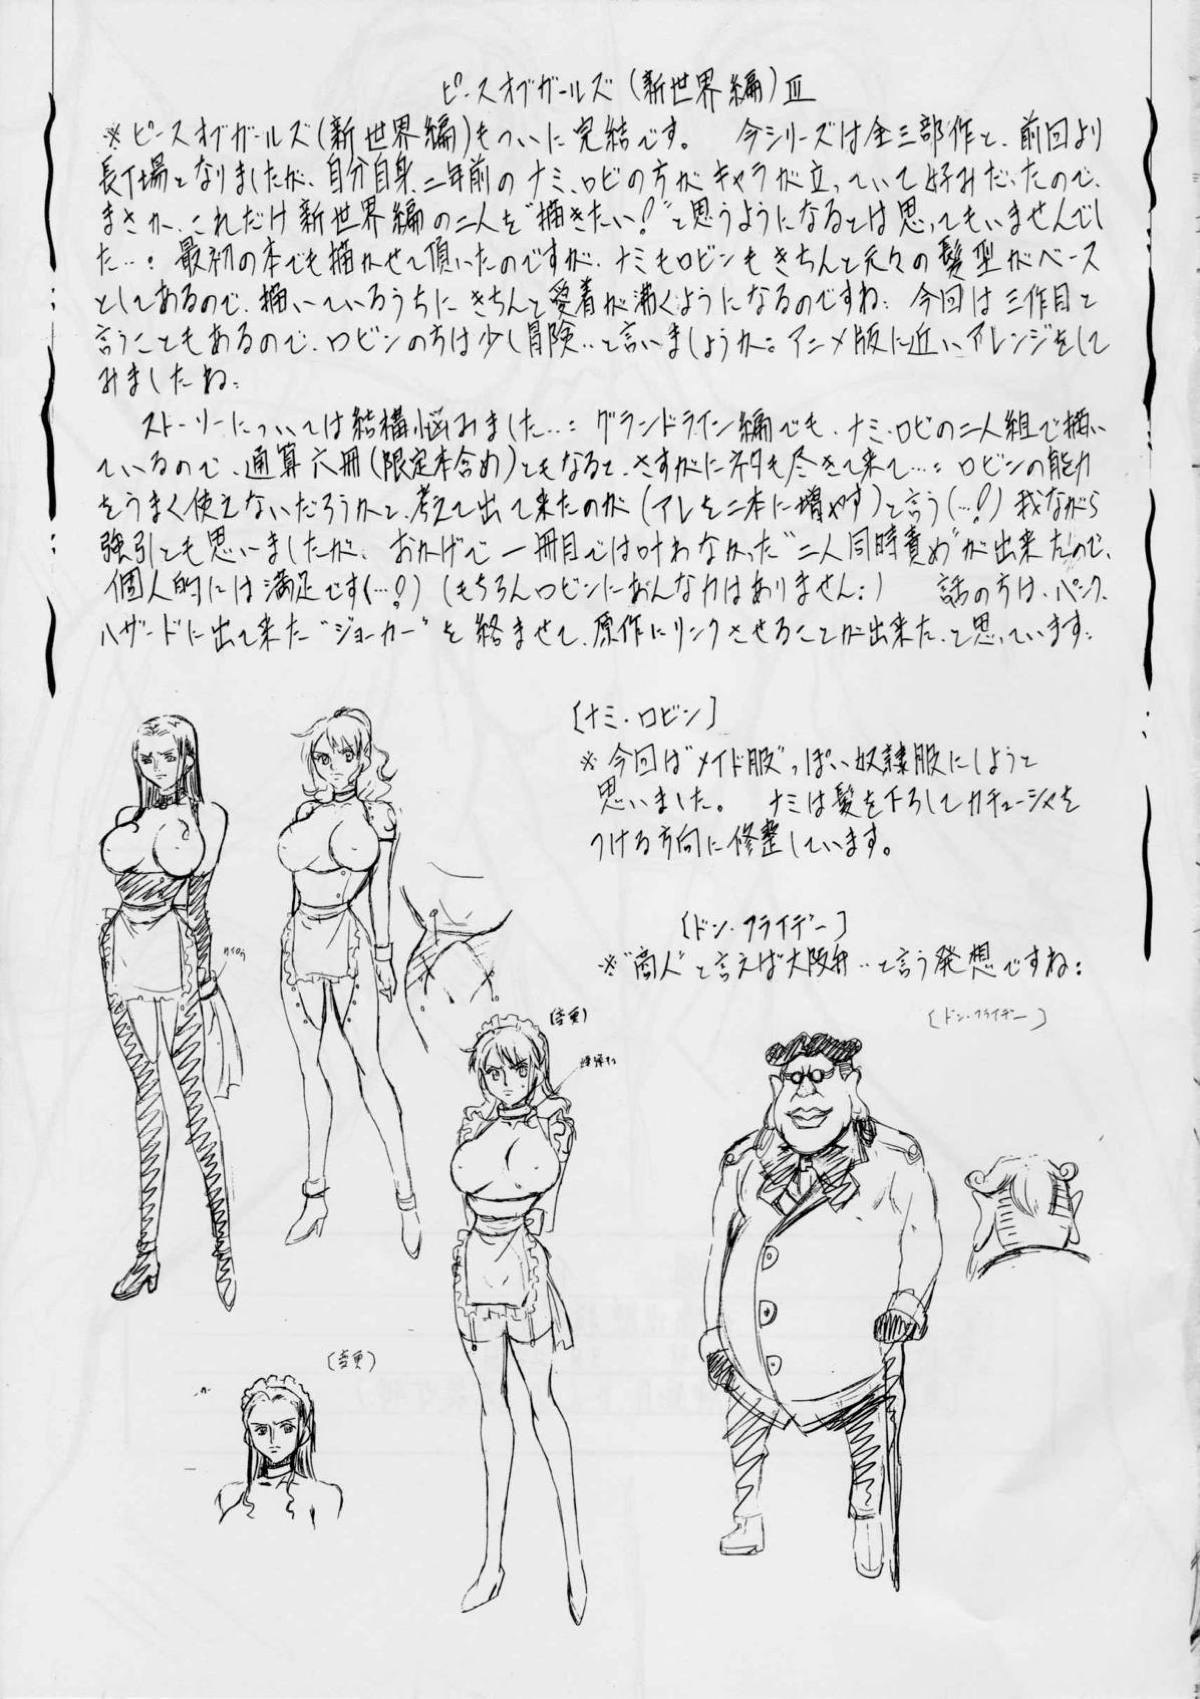 ピースオブガールズ(新世界編)Ⅲ
※ピースオブガールズ(新世界編)もついに完結です。 今シリーズは全三部作と、前回より
長丁場となりましたが、自分自身、二年前のナミ、ロビの方がキャラが立っていて好みだったので、
まさか、これだけ新世界編の二人を“描きたい!”と思うようになるとは思ってもいませんでし
た…: 最初の本でも描かせて頂いたのですが、ナミもロビンもきちんと元々の髪型がベース
としてあるので、描いているうちにきちんと愛着が沸くようになるのですね: 今回は三作目と
言うこともあるので、ロビンの方は少し冒険‥と言いましょうか。アニメ版に近いアレンジをして
みましたね:
ストーリーについては結構悩みました…: グランドライン編でも、ナミ・ロビの二人組で描い
ているので、通算六冊(限定本含め)ともなると、さすがにネタも尽きて来て…: ロビンの能力
をうまく使えないだろうかと、考えて出て来たのが(アレを二本に増やす)と言う(…!)我ながら
強引とも思いましたが、おかげで一冊目では叶わなかった“二人同時責め”が出来たので、
個人的には満足です(…!) (もちろんロビンにあんな力はありません:) 話の方は、パンク
ハザードに出て来た“ジョーカー”を絡ませて、原作にリンクさせることが出来た、と思っています:
[ナミ・ロビン]
※今回は“メイド服”っぽい奴隷服にしようと
思いました。 ナミは髪を下ろしてカチューシャを
つける方向に修整しています。
[ドン・フライデー]
※“商人”と言えば大阪弁‥と言う発想ですね:
(変更)
[ドン・フライデー]
(変更)